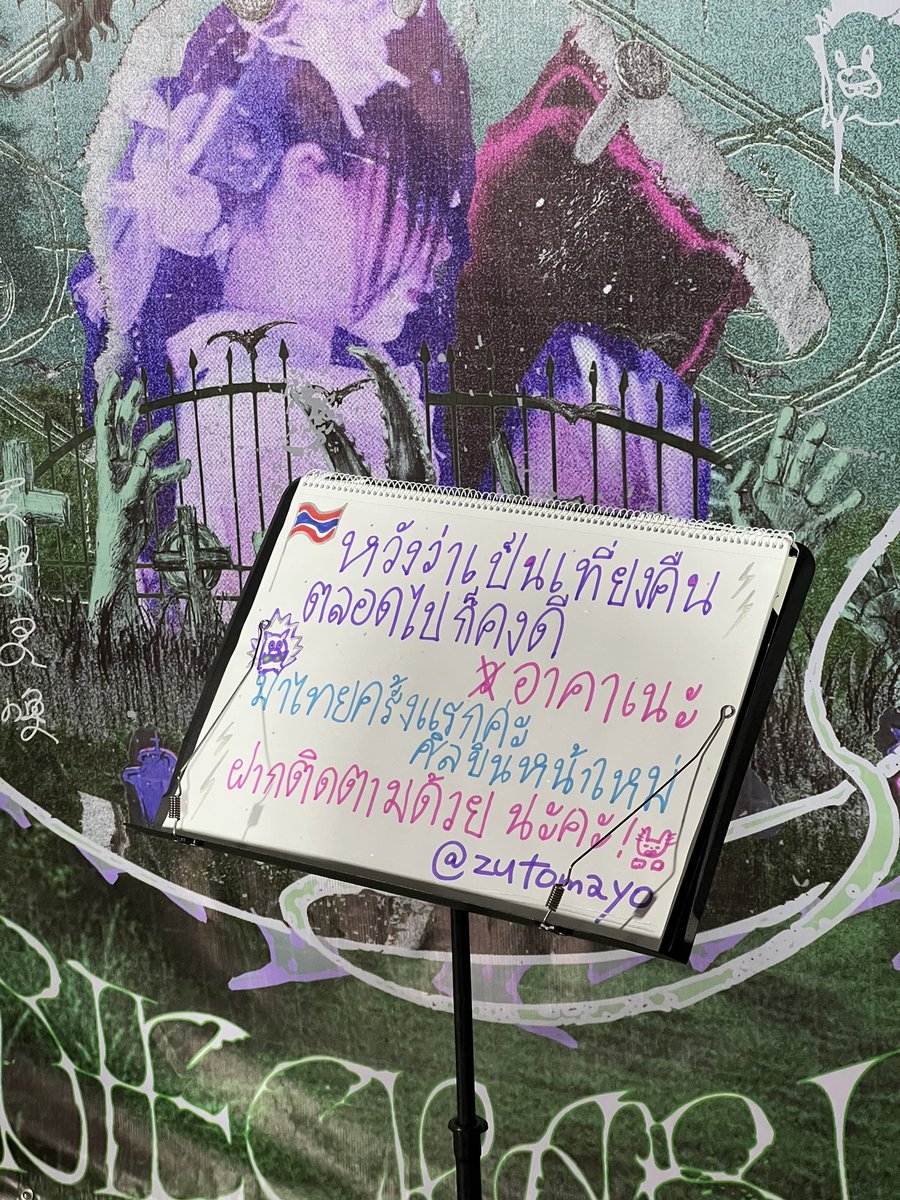 หวังว่าเป็นเที่ยงคืน
ตลอดไปก็คงดี
อาคาเนะ
มาไทยครั้งแรกค่ะ
ศิลปินหน้าใหม่
ฝากติดตามด้วย นะคะ!
@zutomayo